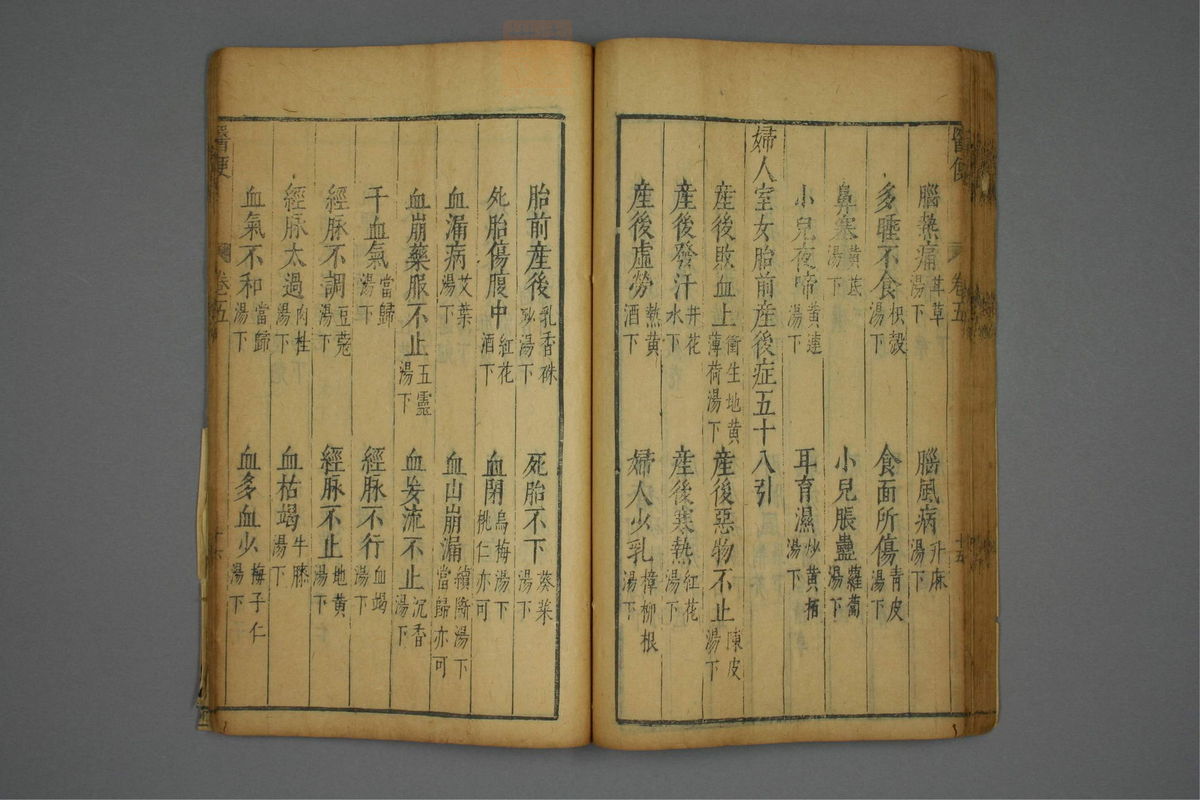 醫便 卷五 十五
腦熱痛茸草湯下 腦風病升麻湯下
多睡不食枳殼湯下 食面所傷青皮湯下
鼻塞黄芪湯下 小兒脹蠱蘿蔔湯下
小兒夜啼黄連湯下 耳育濕炒黄栢湯下
婦人室女胎前産後症五十八引
産後敗血上衝生地黄薄荷湯下 産後惡物不止陳皮湯下
産後發汗井花水下 産後寒熱紅花湯下
産後虚勞熱黄酒下 婦人少乳樟柳根湯下
胎前産後乳香硃砂湯下 死胎不下葵菜湯下
死胎傷腹中紅花酒下 血閉烏梅湯下桃仁亦可
血漏病艾葉湯下 血山崩漏續斷湯下當歸亦可
血崩藥服不止五靈湯下 血妄流不止沉香湯下
干血氣當歸湯下 經脉不行血竭湯下
經脉不調豆蔻湯下 經脉不止地黄湯下
經脉太過肉桂湯下 血枯竭牛膝湯下
血氣不和當歸湯下 血多血少梅子仁湯下
醫便 卷五 十六